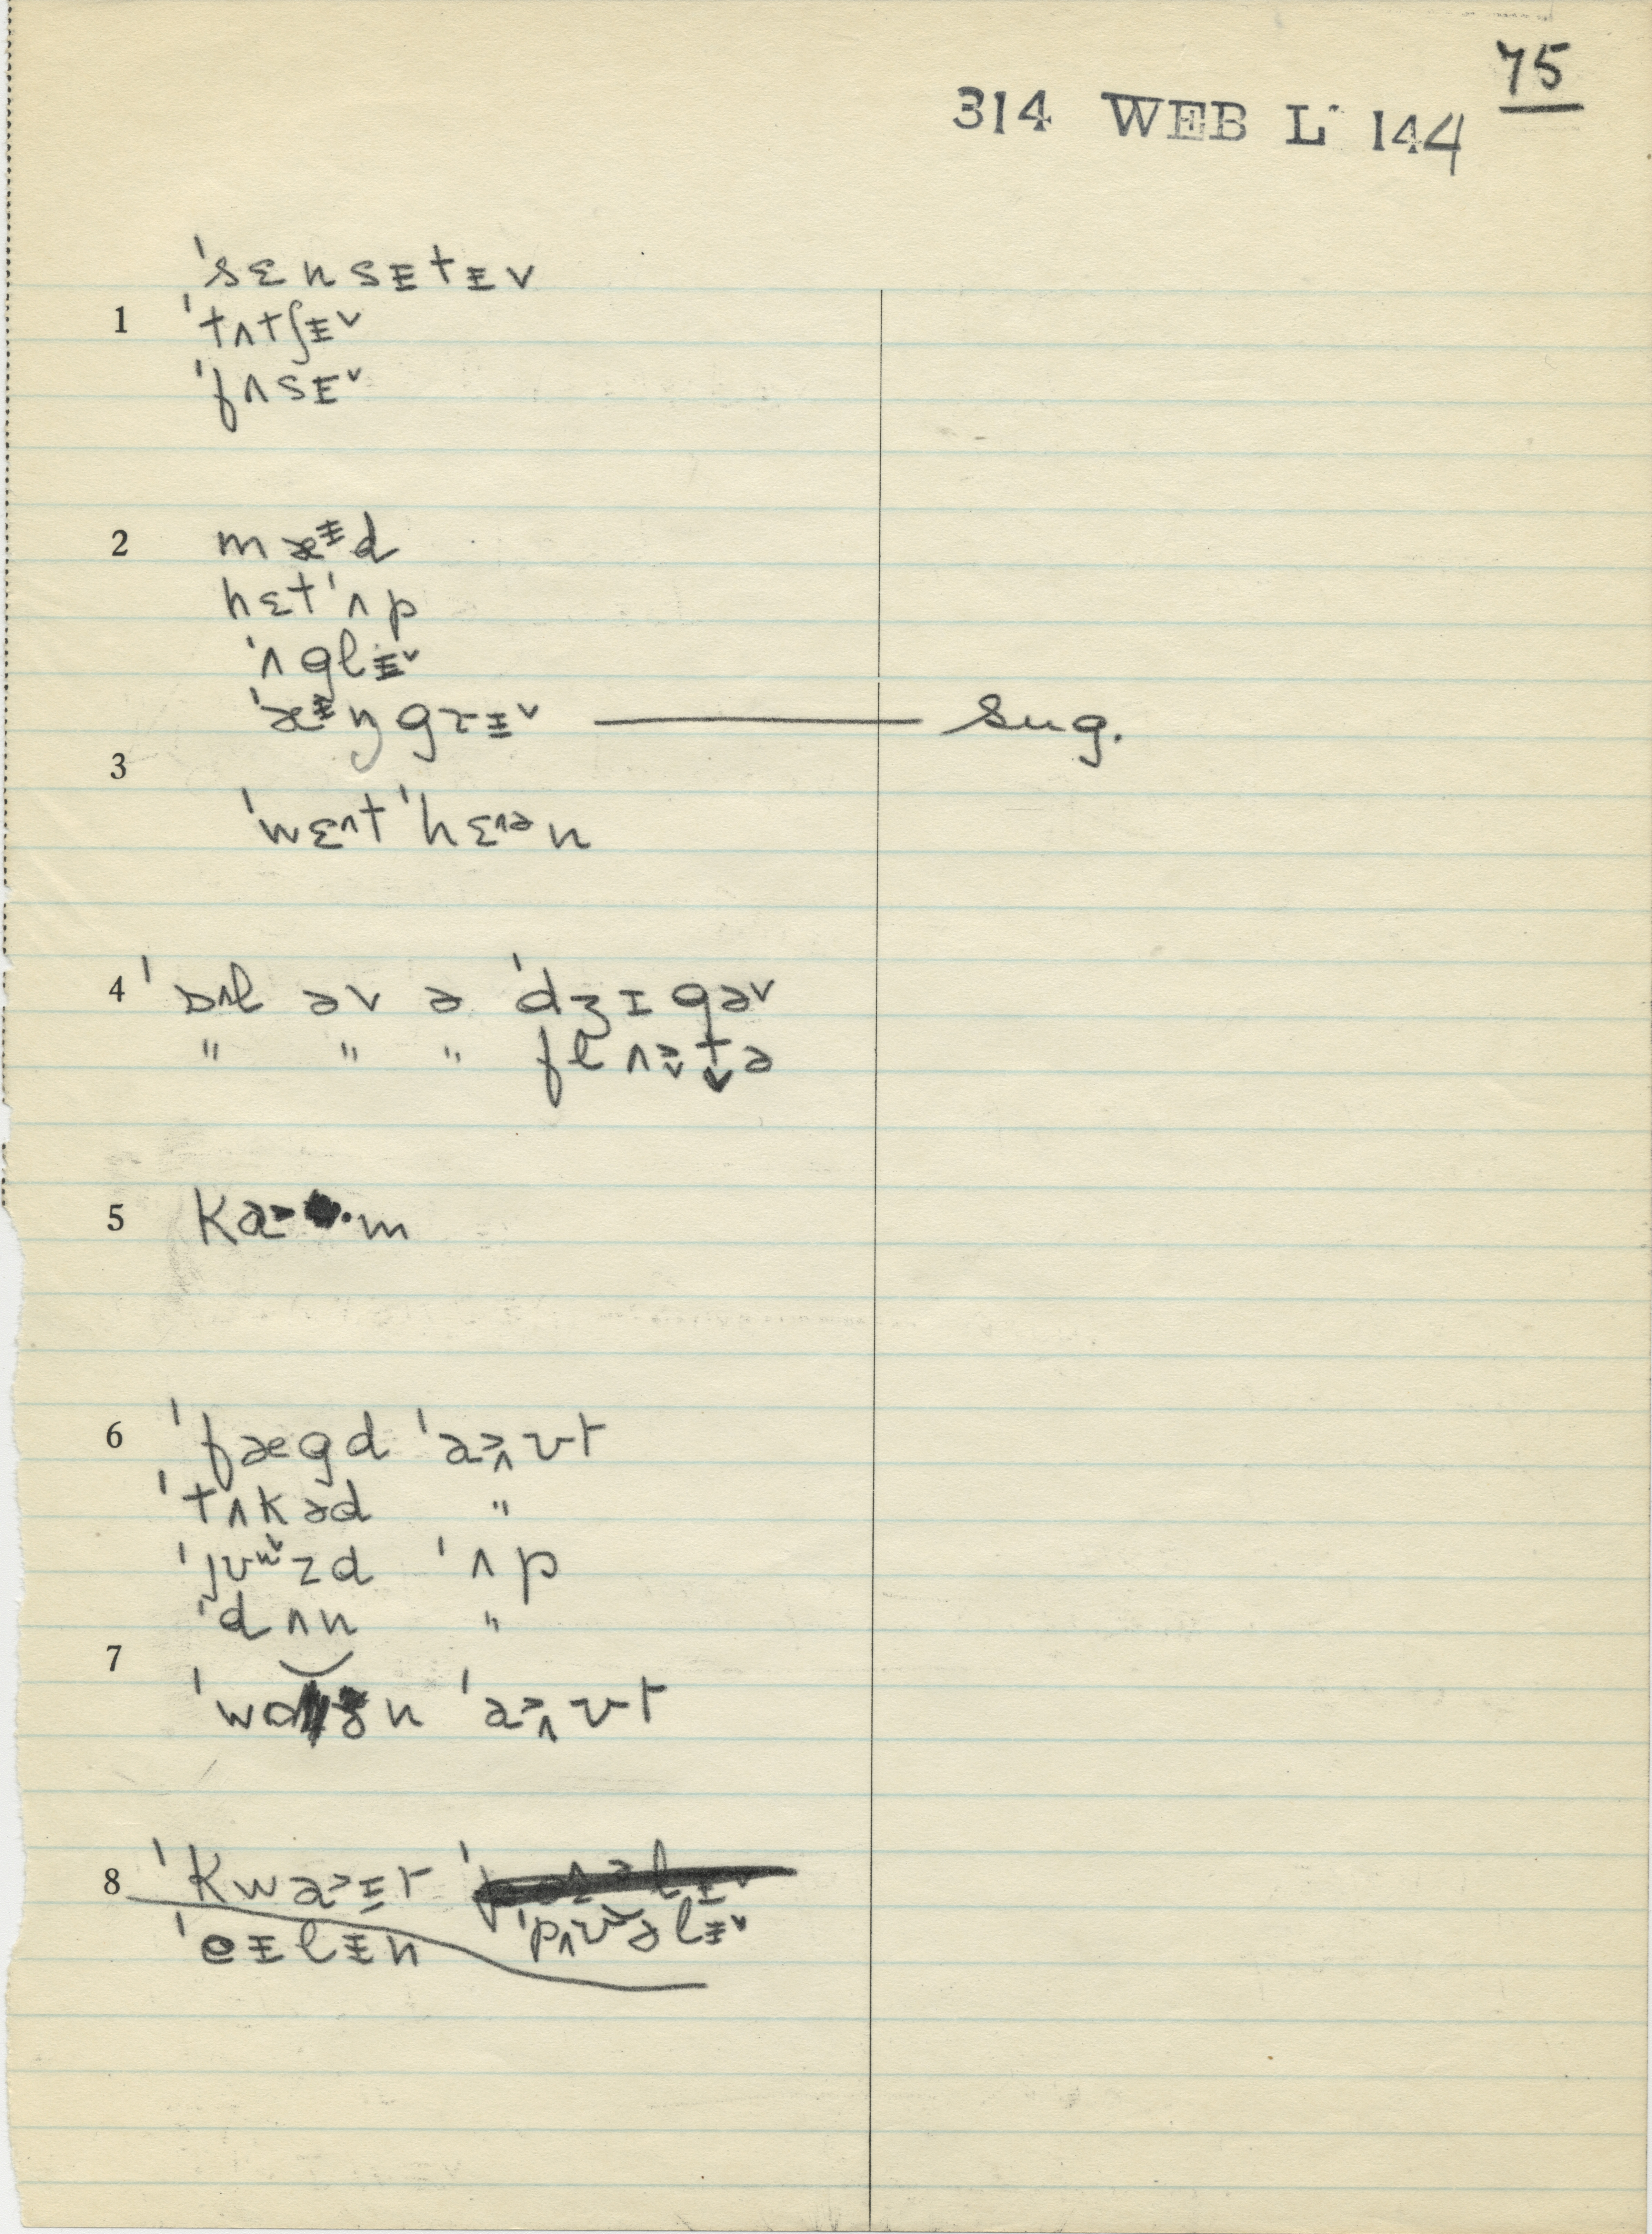 75
314 WEB L 144
ˈsɛnsɪ̵tɪ̵v
1 ˈtʌtʃɪ̵˅
ˈfʌsɪ˅
2 mæɪ̵d
hɛtˈʌp
ˈʌglɪ̵˅
ˈæɪ̵ŋgrɪ̵˅ — sug.
3
ˈwɛʌtˈhɛʌən
4 ˈɒʌl əv ə ˈdʒɪgə˅
" " " flʌə˅tə
5 ka m
6 ˈfægd ˈa>ʌʊt
ˈtʌkəd "
ˈjʊʉ˅zd ˈʌp
ˈdʌn "
7
ˈwɑ n ˈa>ʌʊt
8 ˈkwa>ɪ̵t
ˈeɪ̵lɪ̵n ˈpʌʊ˅əlɪ̵˅